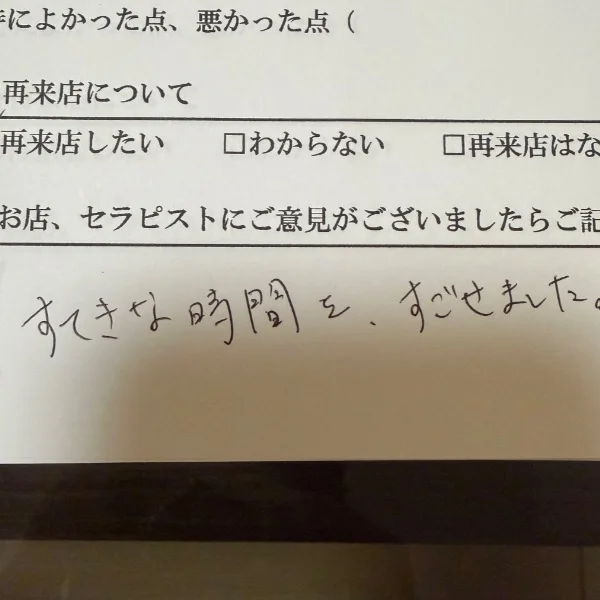 によかった点、悪かった点（
再来店について
再来店したい □わからない □再来店はな
お店、セラピストにご意見がございましたらご記
すてきな時間を、すごせました。